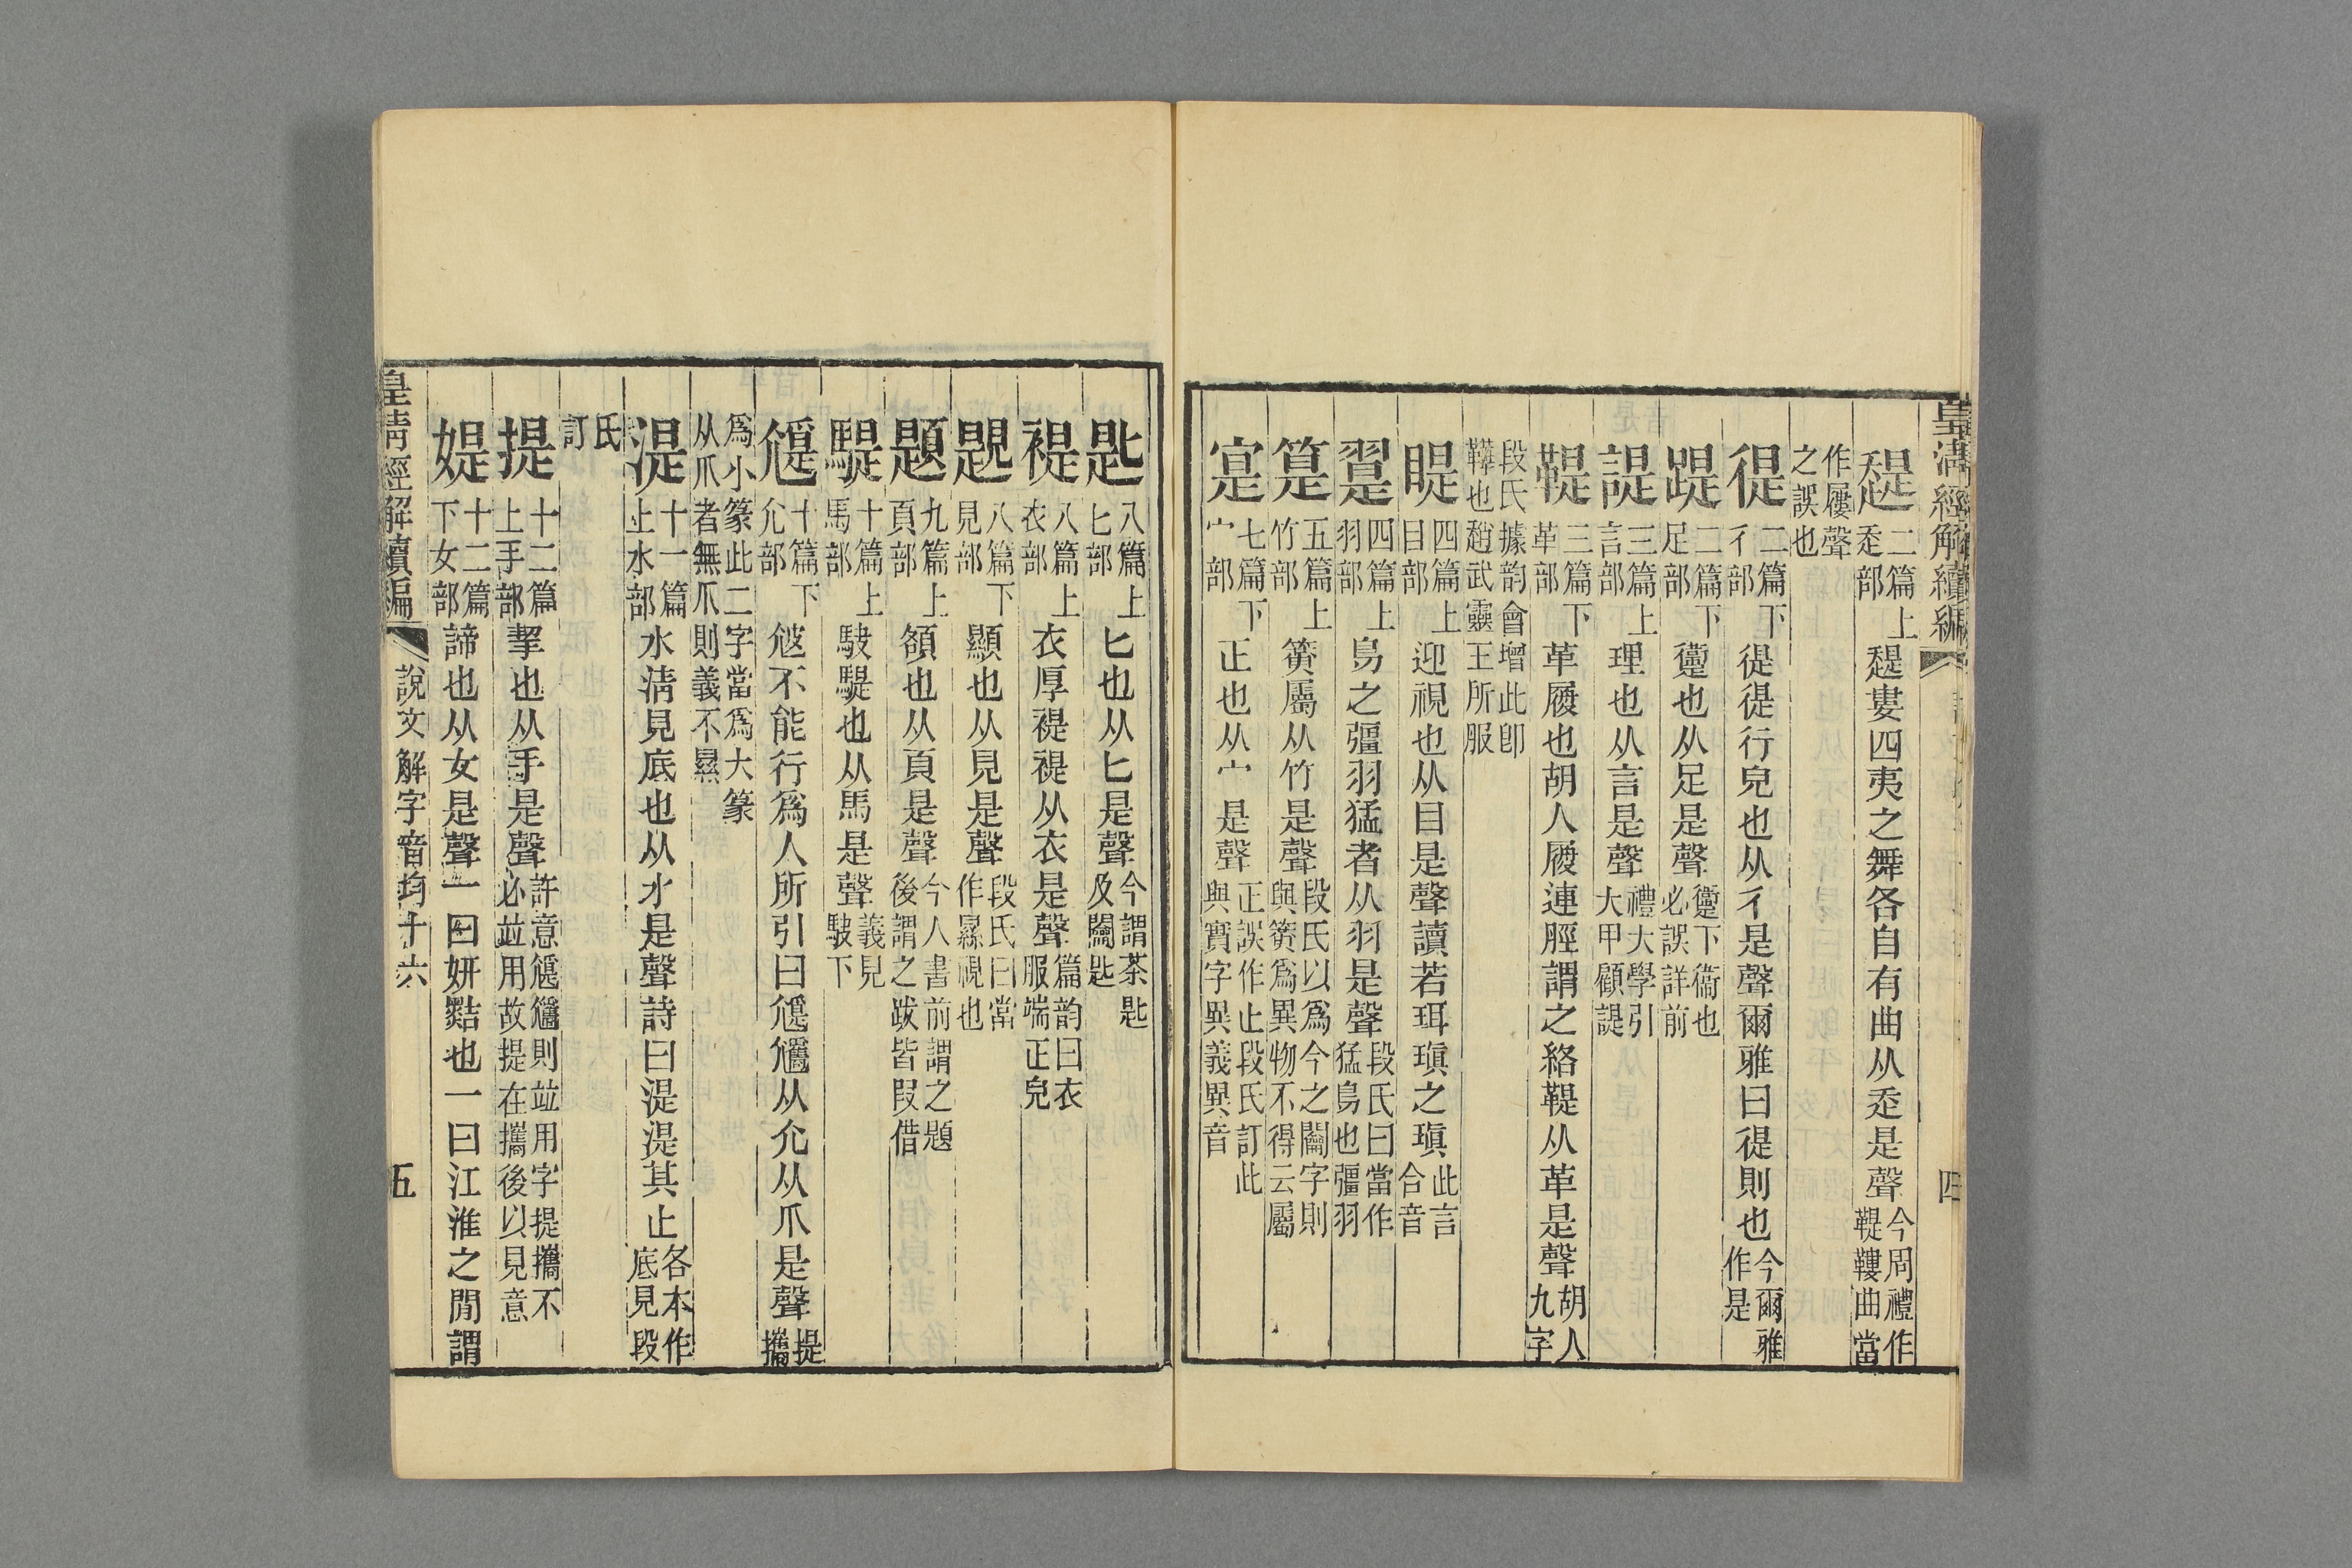 皇清經解續編
四
𧿳二篇上走部𧿳婁四夷之舞各自有曲从走是聲今周禮作鞮鞻曲當
作屨聲之誤也
徥二篇下彳部徥徥行皃也从彳是聲爾雅曰徥則也今爾雅作是
踶二篇下足部躗也从足是聲躗下衞也必誤詳前
諟三篇上言部理也从言是聲禮大學引大甲顧諟
鞮三篇下革部革履也胡人履連脛謂之絡鞮从革是聲胡人九字
段氏據韵會增此卽鞾也趙武靈王所服
睼四篇上目部迎視也从目是聲讀若珥瑱之瑱此言合音
翨四篇上羽部鳥之彊羽猛者从羽是聲段氏曰當作猛鳥也彊羽
箟五篇上竹部簀屬从竹是聲段氏以爲今之闟字則與簀爲異物不得云屬
寔七篇下宀部正也从宀是聲正誤作止段氏訂此與實字異義異音
匙八篇上匕部匕也从匕是聲今謂茶匙及鬮匙
褆八篇上衣部衣厚褆褆从衣是聲篇韵曰衣服端正皃
覞八篇下見部顯也从見是聲段氏曰當作㬎視也
題九篇上頁部頟也从頁是聲今人書前謂之題後謂之跋皆叚借
騠十篇上馬部駃騠也从馬是聲義見駃下
尳十篇下尣部尳不能行爲人所引曰𡰢𡰺从尣从爪是聲提攜
爲小篆此二字當爲大篆从爪者無爪則義不㬎
湜十一篇上水部水淸見底也从水是聲詩曰湜湜其止各本作底見段
氏訂
提十二篇上手部挈也从手是聲許意𡰢𡰺則竝用字提攜不必竝用故提在攜後以見意
媞十二篇下女部諦也从女是聲一曰姸黠也一曰江淮之閒謂
皇清經解續編
說文解字音均十六
五